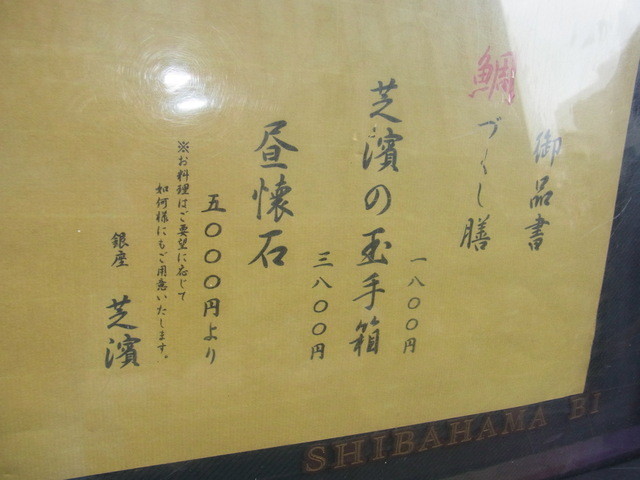 御品書
鯛づくし膳
一八〇〇円
芝濱の玉手箱
三八〇〇円
昼懐石
五〇〇〇円より
※お料理はご要望に応じて
如何様にもご用意いたします。
銀座 芝濱
SHIBAHAMA BI